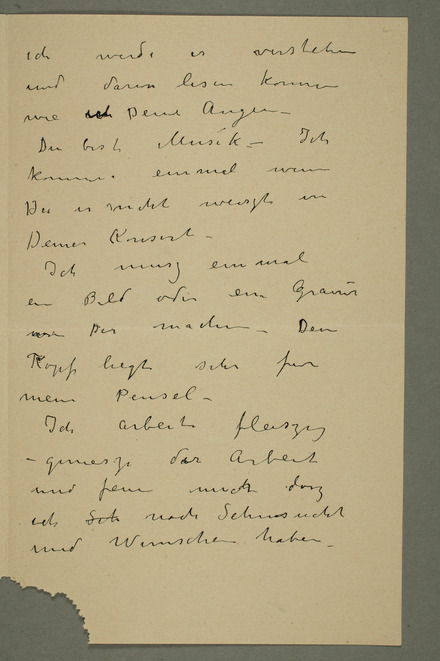 ich werde es verstehen
und darin lesen können
wie Deine Augen –
Du bist Musik – Ich
komme einmal wenn
Du es nicht weiszt in
Deines Konzert –
Ich musz einmal
ein Bild oder ein Gravür
von Dir machen – Dein
Kopf liegt sehr für
mein Pensel –
Ich arbeite fleiszig
– geniesze der Arbeit
und freue mich dasz
ich noch Sehnsucht
und Wünschen haben –